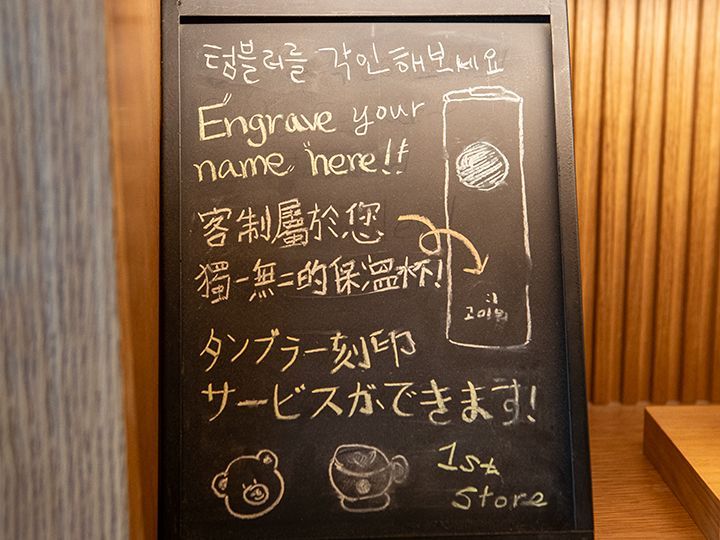 텀블러를 각인해보세요
Engrave your
name "here!!
客制屬於您
獨一無二的保溫杯!
タンブラー刻印
サービスができます!
1st
Store